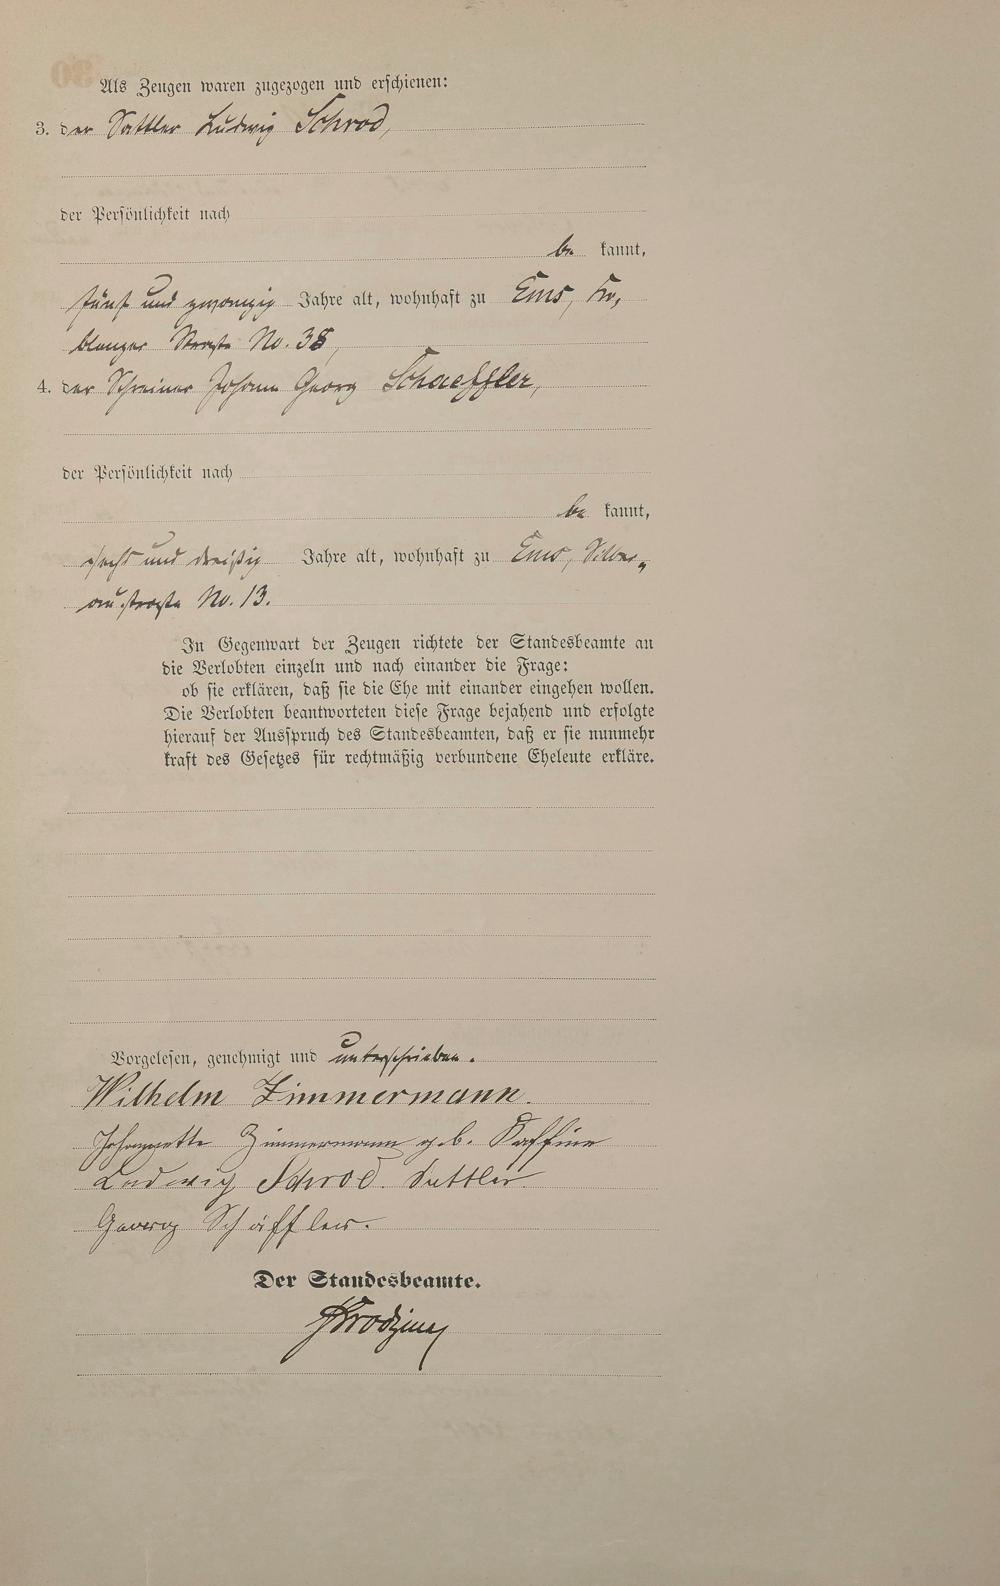 Als Zeugen waren zugezogen und erschienen:
3. der Sattler Ludwig Schrod,
der Persönlichkeit nach
be kannt,
fünf und zwanzig Jahre alt, wohnhaft zu Ems, Ko,
blenzer Straße No. 38,
4. der Schreiner Johann Georg Schaeffler,
der Persönlichkeit nach
be kannt,
sechs und dreißig Jahre alt, wohnhaft zu Ems, Silber„
austraße No. 13.
In Gegenwart der Zeugen richtete der Standesbeamte an
die Verlobten einzeln und nach einander die Frage:
ob sie erklären, daß sie die Ehe mit einander eingehen wollen.
Die Verlobten beantworteten diese Frage bejahend und erfolgte
hierauf der Ausspruch des Standesbeamten, daß er sie nunmehr
kraft des Gesetzes für rechtmäßig verbundene Eheleute erkläre.
Vorgelesen, genehmigt und unterschrieben.
Wilhelm Zimmermann.
Johannette Zimmermann geb. Kaffine
Ludwig Schrod. Sattler
Georg Schäffler.
Der Standesbeamte.